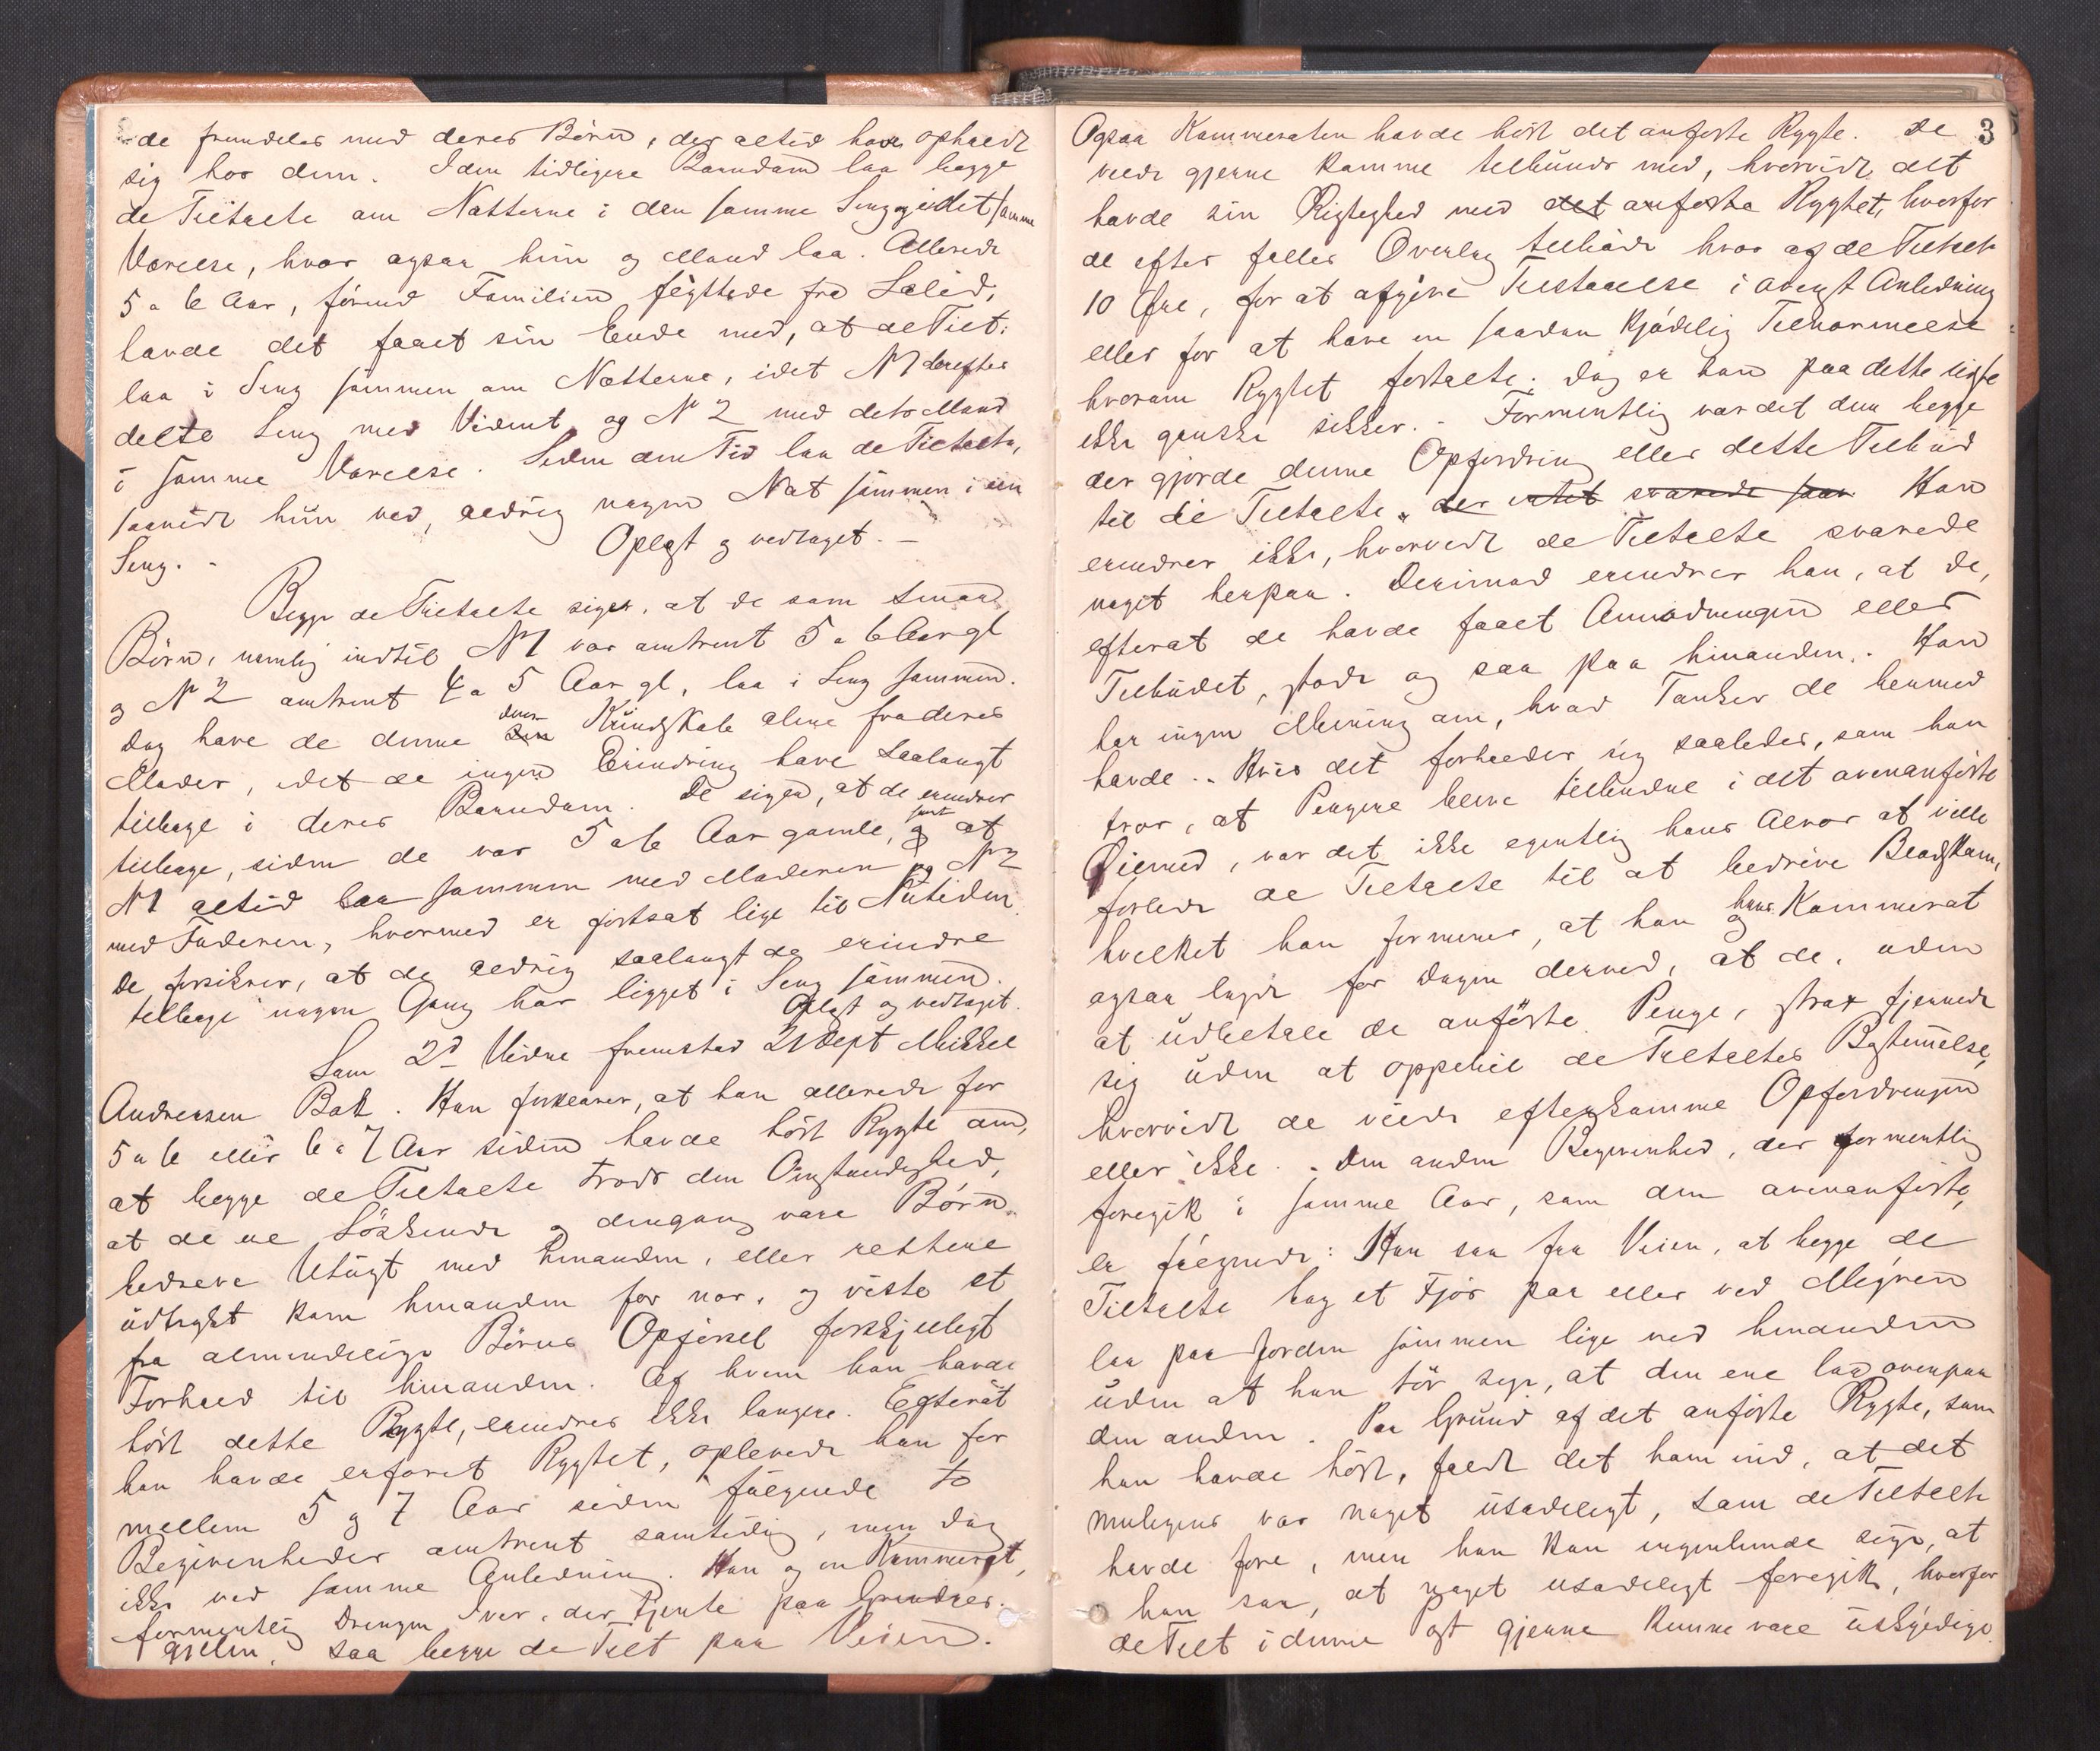 de fremdeles med deres Börn, der altid have opholdt
sig hos dem. I den tidligere Barndom laa begge
de Tiltalte om Nætterne i den samme Seng og i det samme
Værelse, hvor ogsaa hun og Mand laa. Allerede
5 a 6 Aar, förend Familien flyttede fra
havde det faaet sin Ende med, at de Tilt.
laa i Seng sammen om Nætterne, idet N 1 derefter
delte Seng med Vidnet og N 2 med dets Mand
i samme Værelse. Siden den Tid laa de Tiltalte,
saavidt hun ved, aldrig nogen Nat sammen i een
Seng. - Oplæst og vedtaget. -
Begge de Tiltalte siger, at de som smaa
Börn, nemlig indtil N 1 var omtrent 5 a 6 Aar gl
og N 2 omtrent 4 a 5 Aar gl, laa i Seng sammen.
Dog have de denne deres Kundskab alene fra deres
Moder, idet de ingen Erindring have saalangt
tilbage i deres Barndom. De siger, at de erindrer
tilbage, siden de var 5 a 6 Aar gamle, samt at
N 1 altid laa sammen med Moderen og N 2
med Faderen, hvormed er fortsat lige til Nutiden.
De forsikrer, at de aldrig saalangt de erindre
tilbage nogen Gang har ligget i Seng sammen.
Oplæst og vedtaget.
Som 2d Vidne fremstod 21 Sept Mikkel
Andreasen Bak. Han forklarer, at han allerede for
5 a 6 eller 6 a 7 Aar siden havde hört Rygte om,
at begge de Tiltalte trods den Omstændighed,
at de ere Söskende og dengang vare Börn,
bedreve Utugt med hinanden, eller rettere
udtrykt kom hinanden for nær, og viste et
fra almindelige Börns Opförsel forskjelligt
Forhold til hinanden. Af hvem han havde
hört dette Rygte, erindrer ikke længere. Efterat
han havde erfaret Rygtet, oplevede han for
mellem 5 og 7 Aar siden fölgende to
Begivenheder omtrent samtidig, men dog
ikke ved samme Anledning. Han og en Kammerat,
formentlig Drengen Iver, der tjente paa
saa begge de Tilt paa Veien.
3
Ogsaa Kammeraten havde hört det anförte Rygte. De
vilde gjerne komme tilbunds med, hvorvidt det
havde sin Rigtighed med det anförte Rygtet, hvorfor
de efter fælles Overlæg tilböde hver af de Tiltalte
10 Öre, for at afgive Tilstaaelse i övrigt Anledning
eller for at have en saadan kjödelig Tilnærmelse
hvorom Rygtet fortalte. Dog er han paa dette sidste
ikke ganske sikker. - Formentlig var det dem begge
der gjorde denne Opfordring eller dette Tilbud
til de Tiltalte, der intet svarede paa Han
erindrer ikke, hvorvidt de Tiltalte svarede
noget herpaa. Derimod erindrer han, at de,
efterat de havde faaet Anmodningen eller
Tilbudet, stode og saa paa hinanden. Han
har ingen Mening om, hvad Tanker de hermed
havde. - Hvis det forholder sig saaledes, som han
tror, at Pengene bleve tilbudne i det ovenanförte
Öiemed, var det ikke egentlig hans Alvor at ville
forlede de Tiltalte til at bedrive Blodskam,
hvilket han formener, at han og hans Kammerat
ogsaa lagde for Dagen derved, at de, uden
at udbetale de anförte Penge, strax fjernede
sig uden at oppebie de Tiltaltes Bestemmelse,
hvorvidt de vilde efterkomme Opfordringen
eller ikke. - Den anden Begivenhed, der formentlig
foregik i samme Aar, som den ovenanförte,
er fölgende: Han saa fra Veien, at begge de
Tiltalte bag et Fjös paa eller ved Myren
laa paa Jorden sammen lige ved hinanden
uden at han tör sige, at den ene laa ovenpaa
den anden. Paa Grund af det anförte Rygte, som
han havde hört, faldt det ham ind, at det
muligens var noget usædeligt, som de Tiltalte
havde fore, men han kan ingenlunde sige, at
han saa, at noget usædeligt foregik, hvorfor
de Tilt i denne Post gjerne kunne være uskyldige.